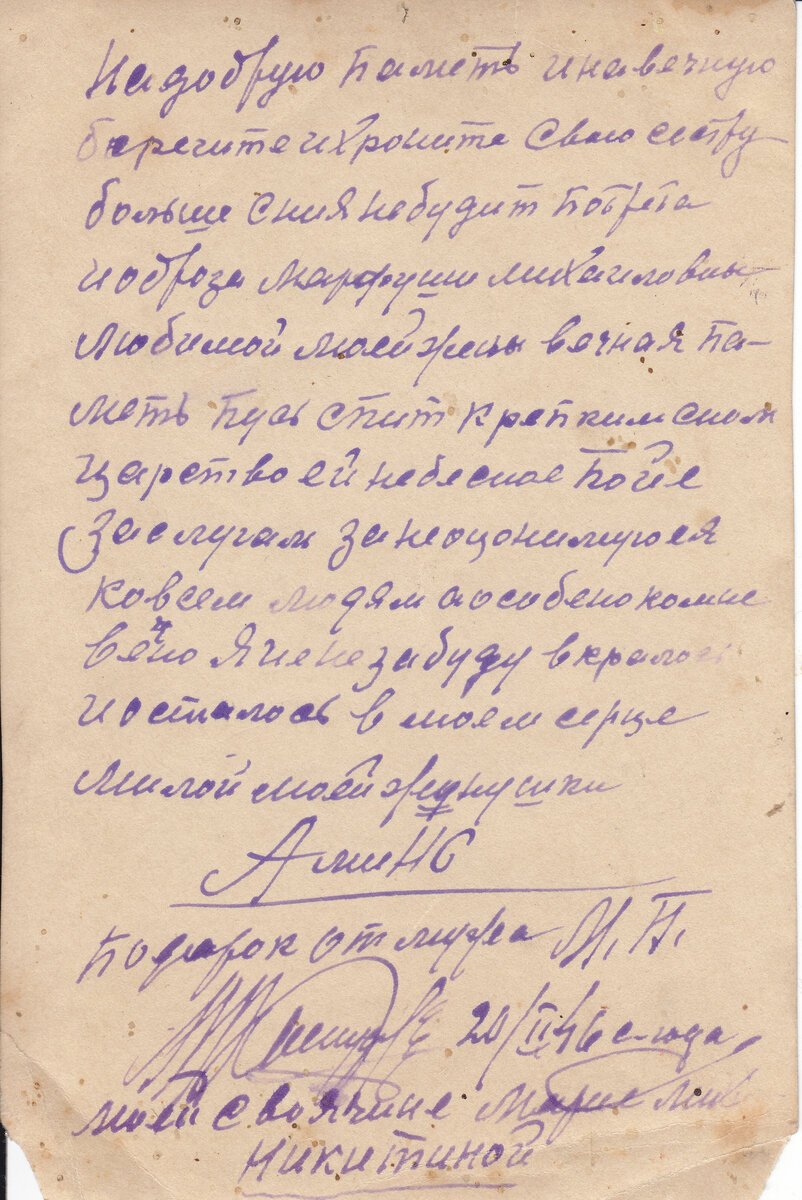 На добрую память и на вечную
беригите и хроните Свою сестру
больше сния не будит потрета
и оброза марфуши михаиловны
Любимой моей жены вечная па-
меть пусь спит крепким сном
царство ей небесное по ее
заслугам за неоцонимую ея
ко всем людям а особено комне
вечно я не не забуду вкралось
и осталось в моем серце
милой моей женушки
Аминь
Подарок от мужа М. П.
20/II 46 с-года
моей своячине Марие Мих
Никитиной